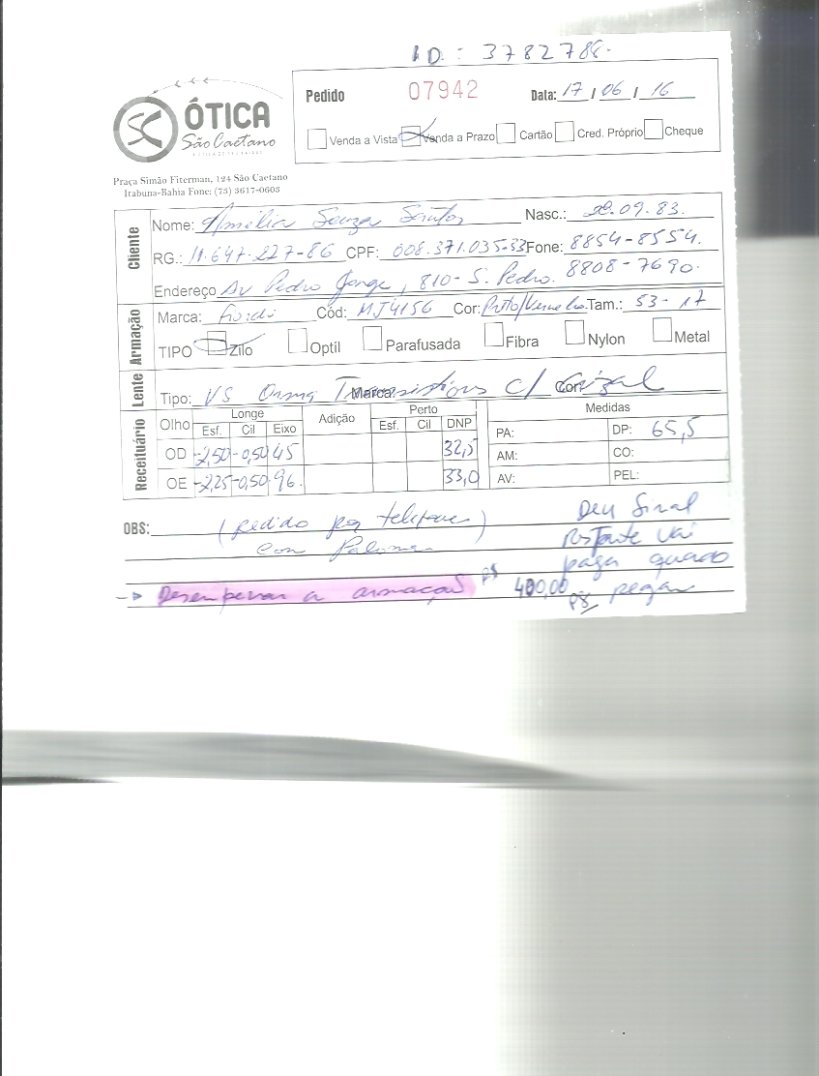 ID: 3782786.
ÓTICA
São Caetano
Pedido 07942 Data: 17 / 06 / 16
Venda a Vista Venda a Prazo Cartão Cred. Próprio Cheque
Praça Simão Fiterman, 124 São Caetano
Itabuna-Bahia Fone: (73) 3617-0605
Cliente
Nome: Amélia Souza Santos Nasc.: 28.09.83.
RG.: 11.647.227-86 CPF: 008.371.035-33 Fone: 8854-8554.
Endereço Av Pedro Jorge, 810- S. Pedro. 8808-7690.
Armação
Marca: Cód: MJ4156 Cor: Preto/Vermelho Tam.: 53-17
TIPO Zilo Optil Parafusada Fibra Nylon Metal
Lente
Tipo: VS Orma Transistions c/ Crizal Marca: Cor:
Receituário
Olho Longe Adição Perto Medidas
Esf. Cil Eixo Esf. Cil DNP PA: DP: 65,5
OD -2,50 -0,50 45 32,5 AM: CO:
OE -2,25 -0,50 96. 33,0 AV: PEL:
OBS: (pedido por telefone) Deu Sinal
com Paloma restante vai
paga quando
-> Desempenar a armação R$ 400,00 pegar